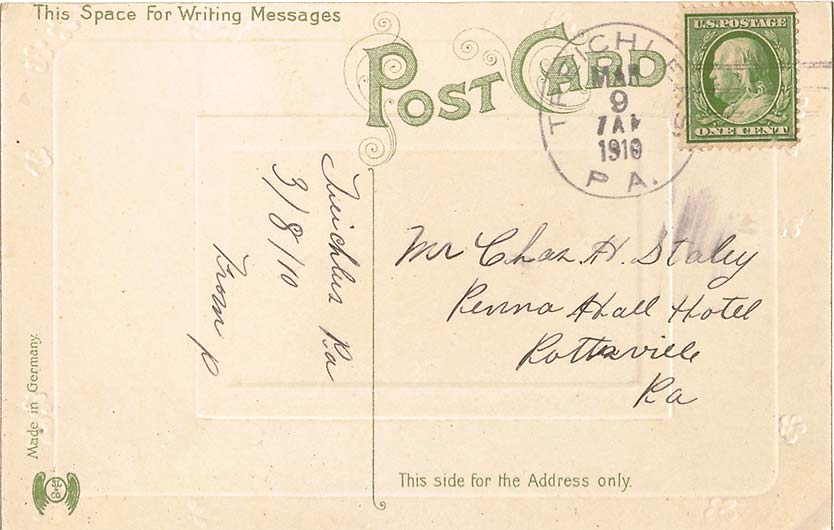 This Space For Writing Messages
POST CARD
U.S. POSTAGE
ONE CENT
TREICHLERS
MAR
9
7 AM
1910
PA.
Treichlers Pa
3/8/10
From P
Mr Chas. H. Staley
Penna Hall Hotel
Pottsville
Pa
Made in Germany.
This side for the Address only.